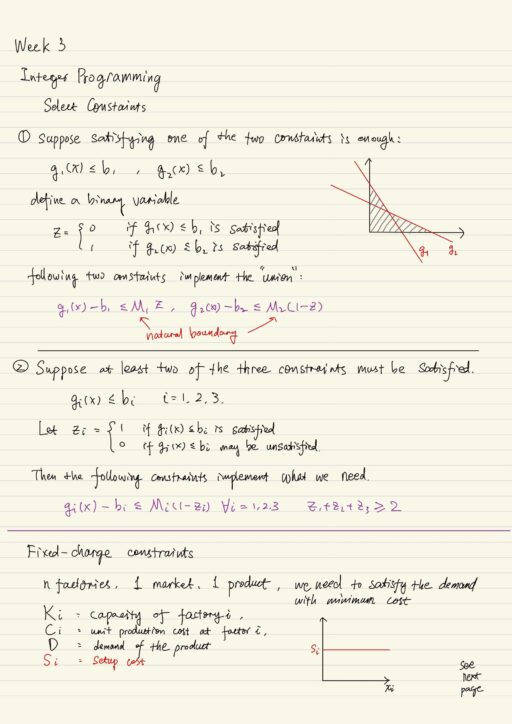 Week 3
Integer Programming
Select Constaints
① Suppose satisfying one of the two constaints is enough:
g₁(x) ≤ b₁ , g₂(x) ≤ b₂
define a binary variable
z = { 0 if g₁(x) ≤ b₁ is satisfied
1 if g₂(x) ≤ b₂ is satisfied
g₁ g₂
following two constaints implement the "union":
g₁(x) - b₁ ≤ M₁ z , g₂(x) - b₂ ≤ M₂ (1-z)
natural boundary
② Suppose at least two of the three constraints must be satisfied.
gᵢ(x) ≤ bᵢ i = 1, 2, 3.
Let zᵢ = { 1 if gᵢ(x) ≤ bᵢ is satisfied
0 if gᵢ(x) ≤ bᵢ may be unsatisfied.
Then the following constraints implement what we need.
gᵢ(x) - bᵢ ≤ Mᵢ (1-zᵢ) ∀i = 1,2,3 z₁+z₂+z₃ ≥ 2
Fixed-charge constraints
n factories, 1 market, 1 product, we need to satisfy the demand
with minimum cost
Kᵢ = capacity of factory i,
Cᵢ = unit production cost at factor i,
D = demand of the product
Sᵢ = Setup cost
Sᵢ
xᵢ
see
next
page